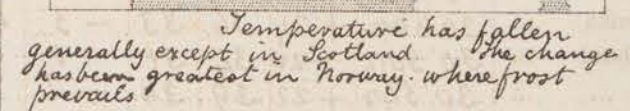 Temperature has fallen
generally except in Scotland. The change
has been greatest in Norway. where frost
prevails